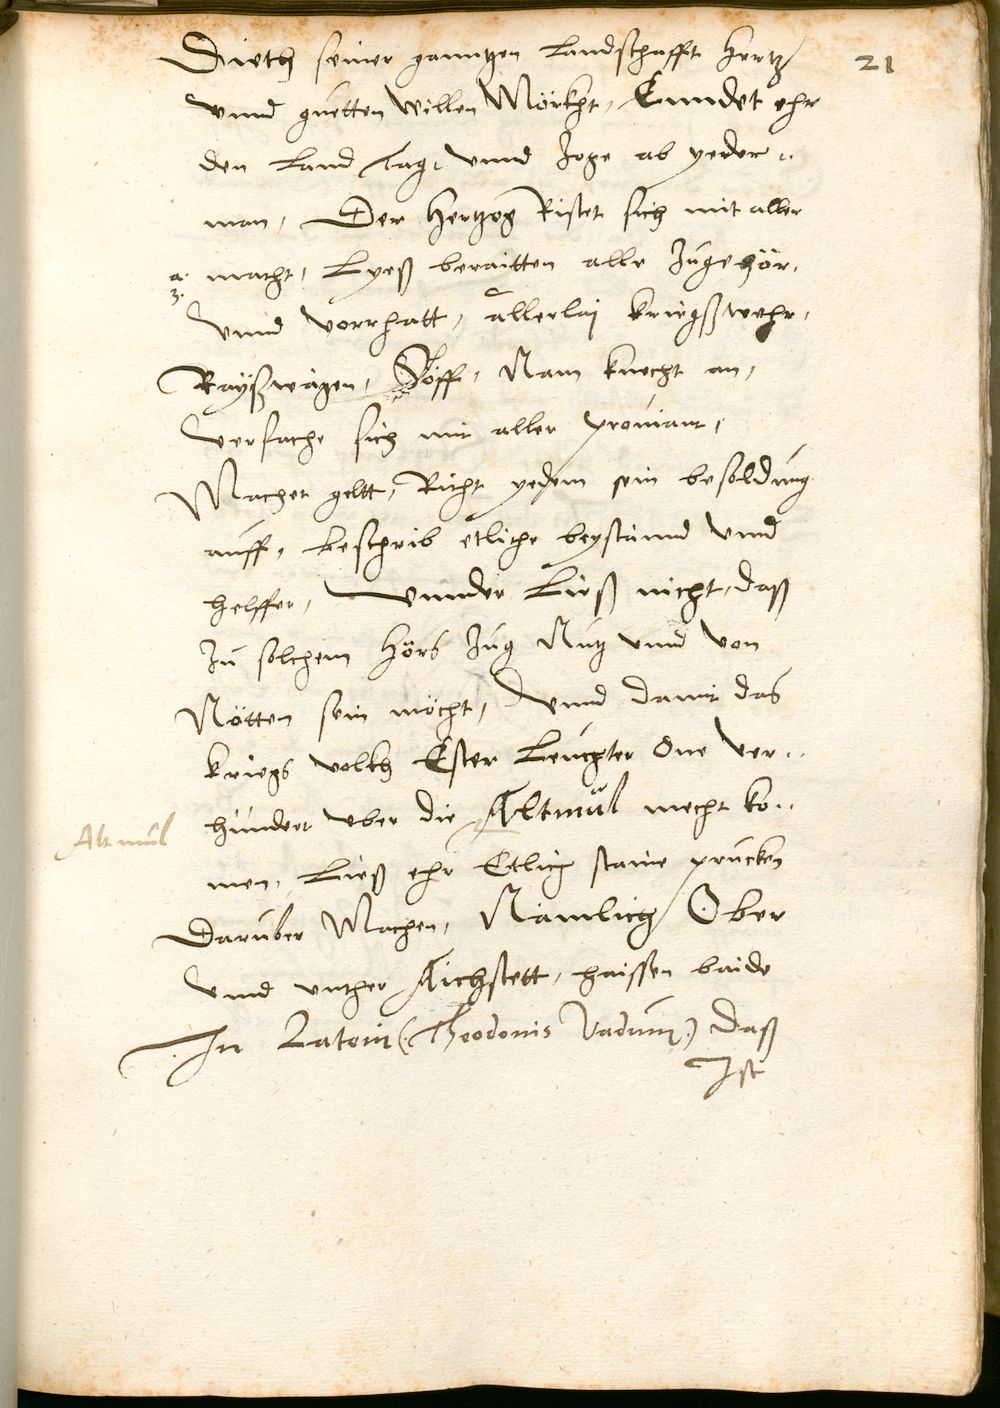 21
Dieth seiner ganntzen Landschafft Hertz
vnnd guetten Willen Mörkht, Enndet ehr
den Land Tag, vnnd Zoge ab yeder..
man, Der Hertzog Ristet sich mit aller
macht, Lyeß beraitten alle Zugehör,
vnnd vorrhatt, allerlaj kriegßwehr,
Rayßwägen, Söff, Nam knecht an,
versache sich mit aller prouiant,
Machet geltt, Richt yedem sein besoldung
auff, beschrib etliche beyständ vnnd
helffer, vnnder Ließ nicht, daß
Zu solchem Hörs Zug Nutz vnnd von
Nötten sein möcht, vnnd damit das
kriegs volkh Ester Leuchter One ver..
hundert vber die Altmül mecht ko..
Altmül
men, Ließ ehr Etlich staine prucken
Daruber Machen, Nämlich Ober
vnnd vnther Aichstett, haissen baide
In Latein (Theodonis Vadum) daß
Ist